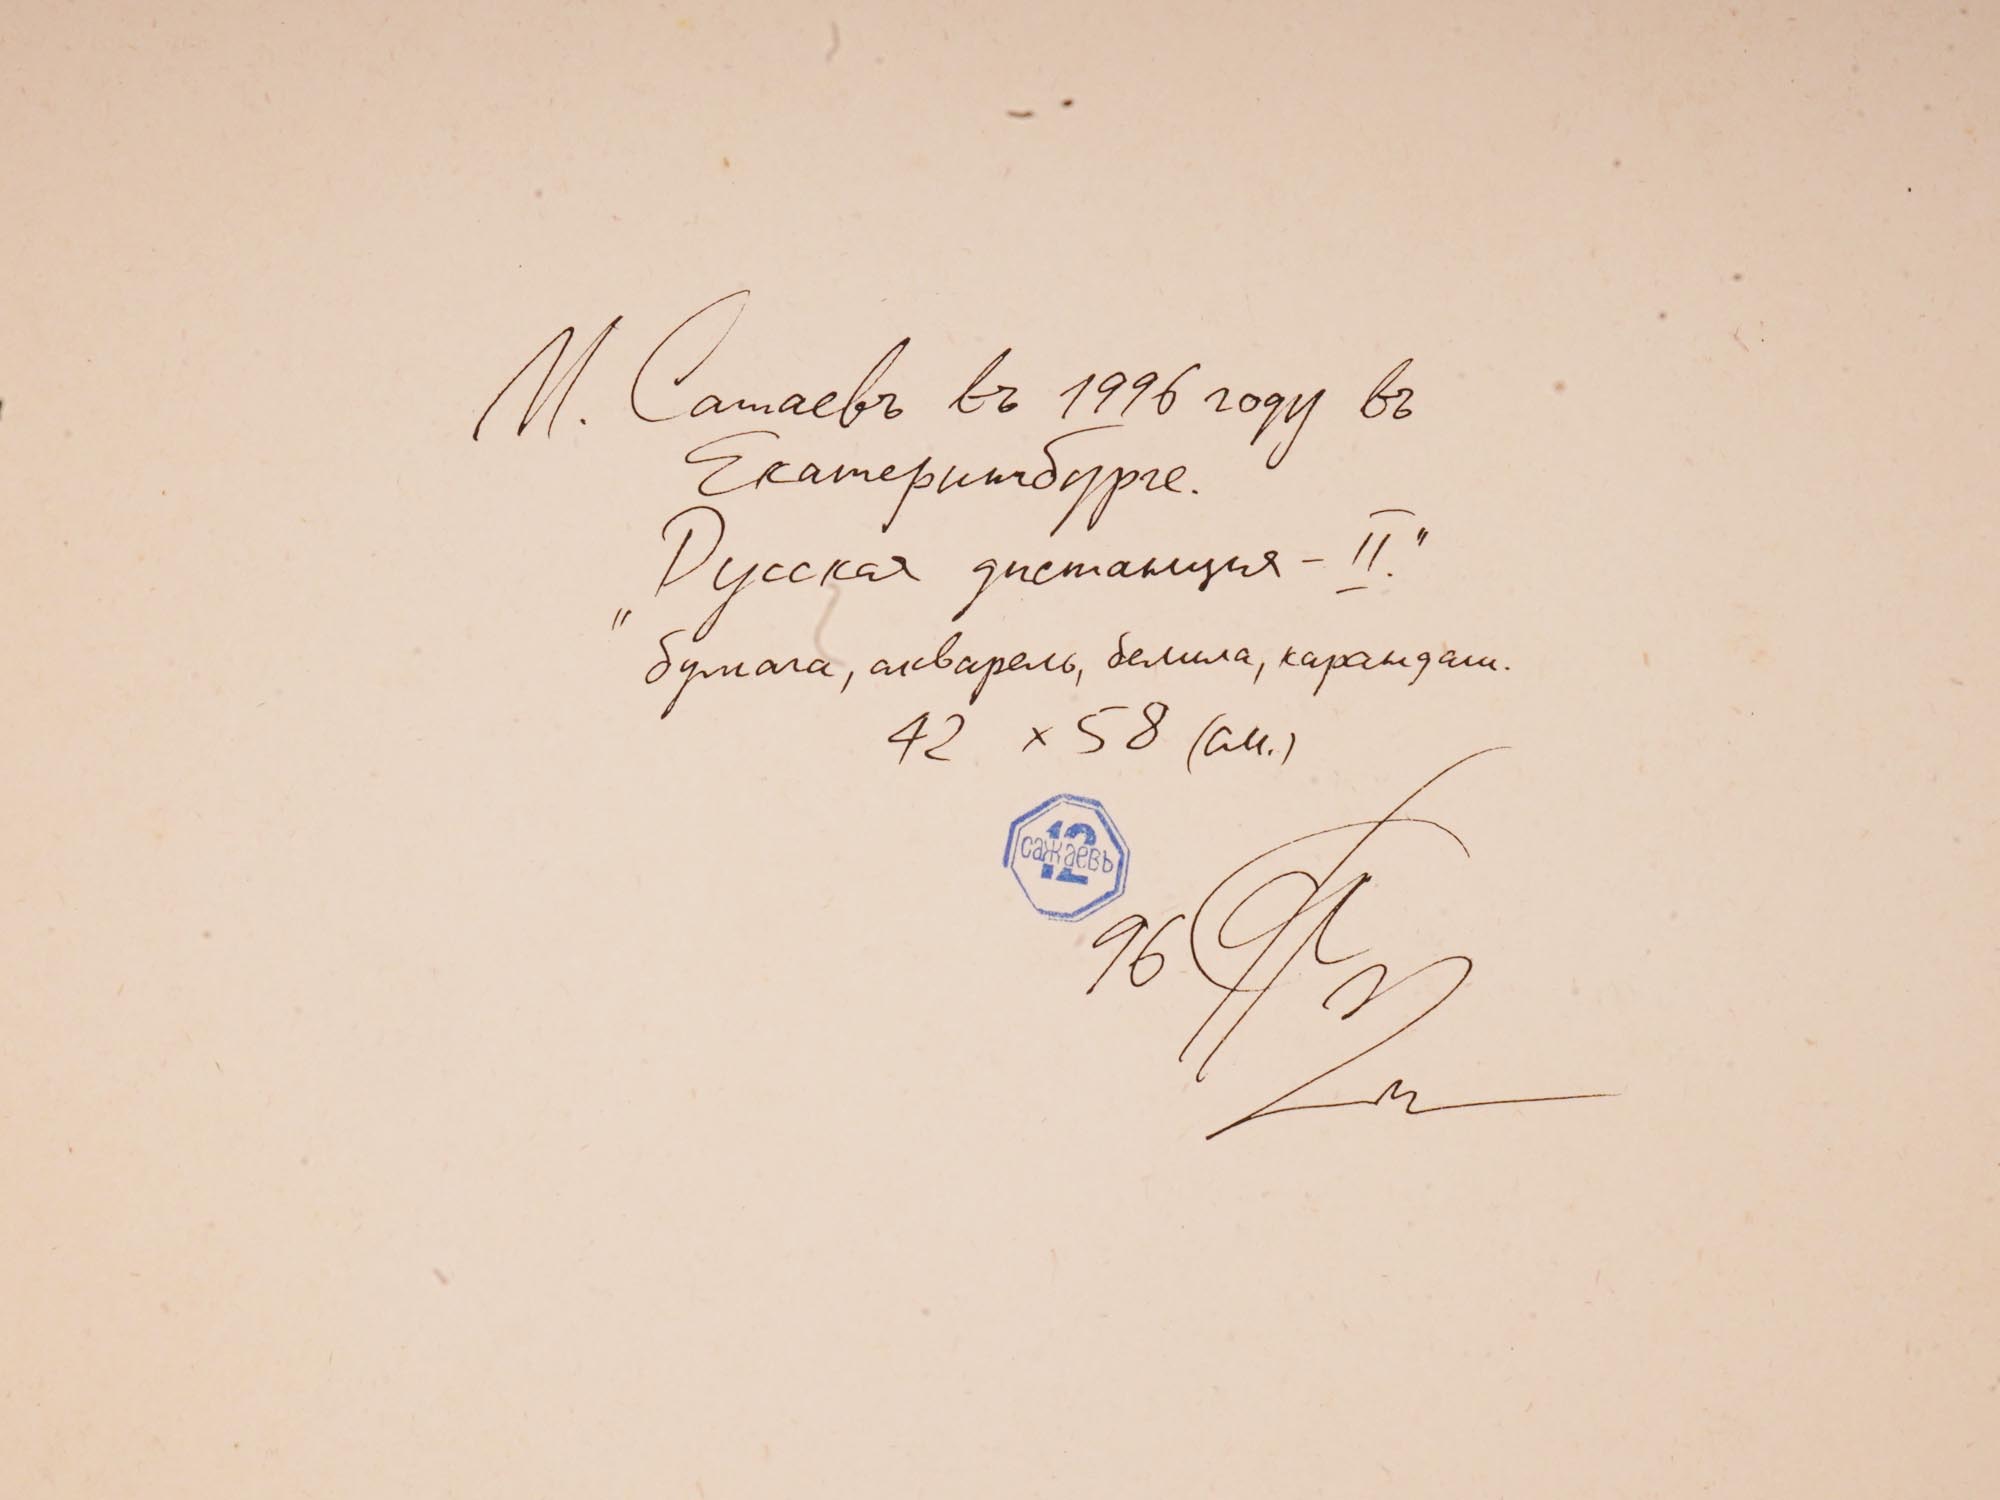 М. Сажаевъ въ 1996 году въ
Екатеринбурге.
"Русская дистанция - II."
бумага, акварель, белила, карандаш.
42 х 58 (см.)
12
сажаевъ
96